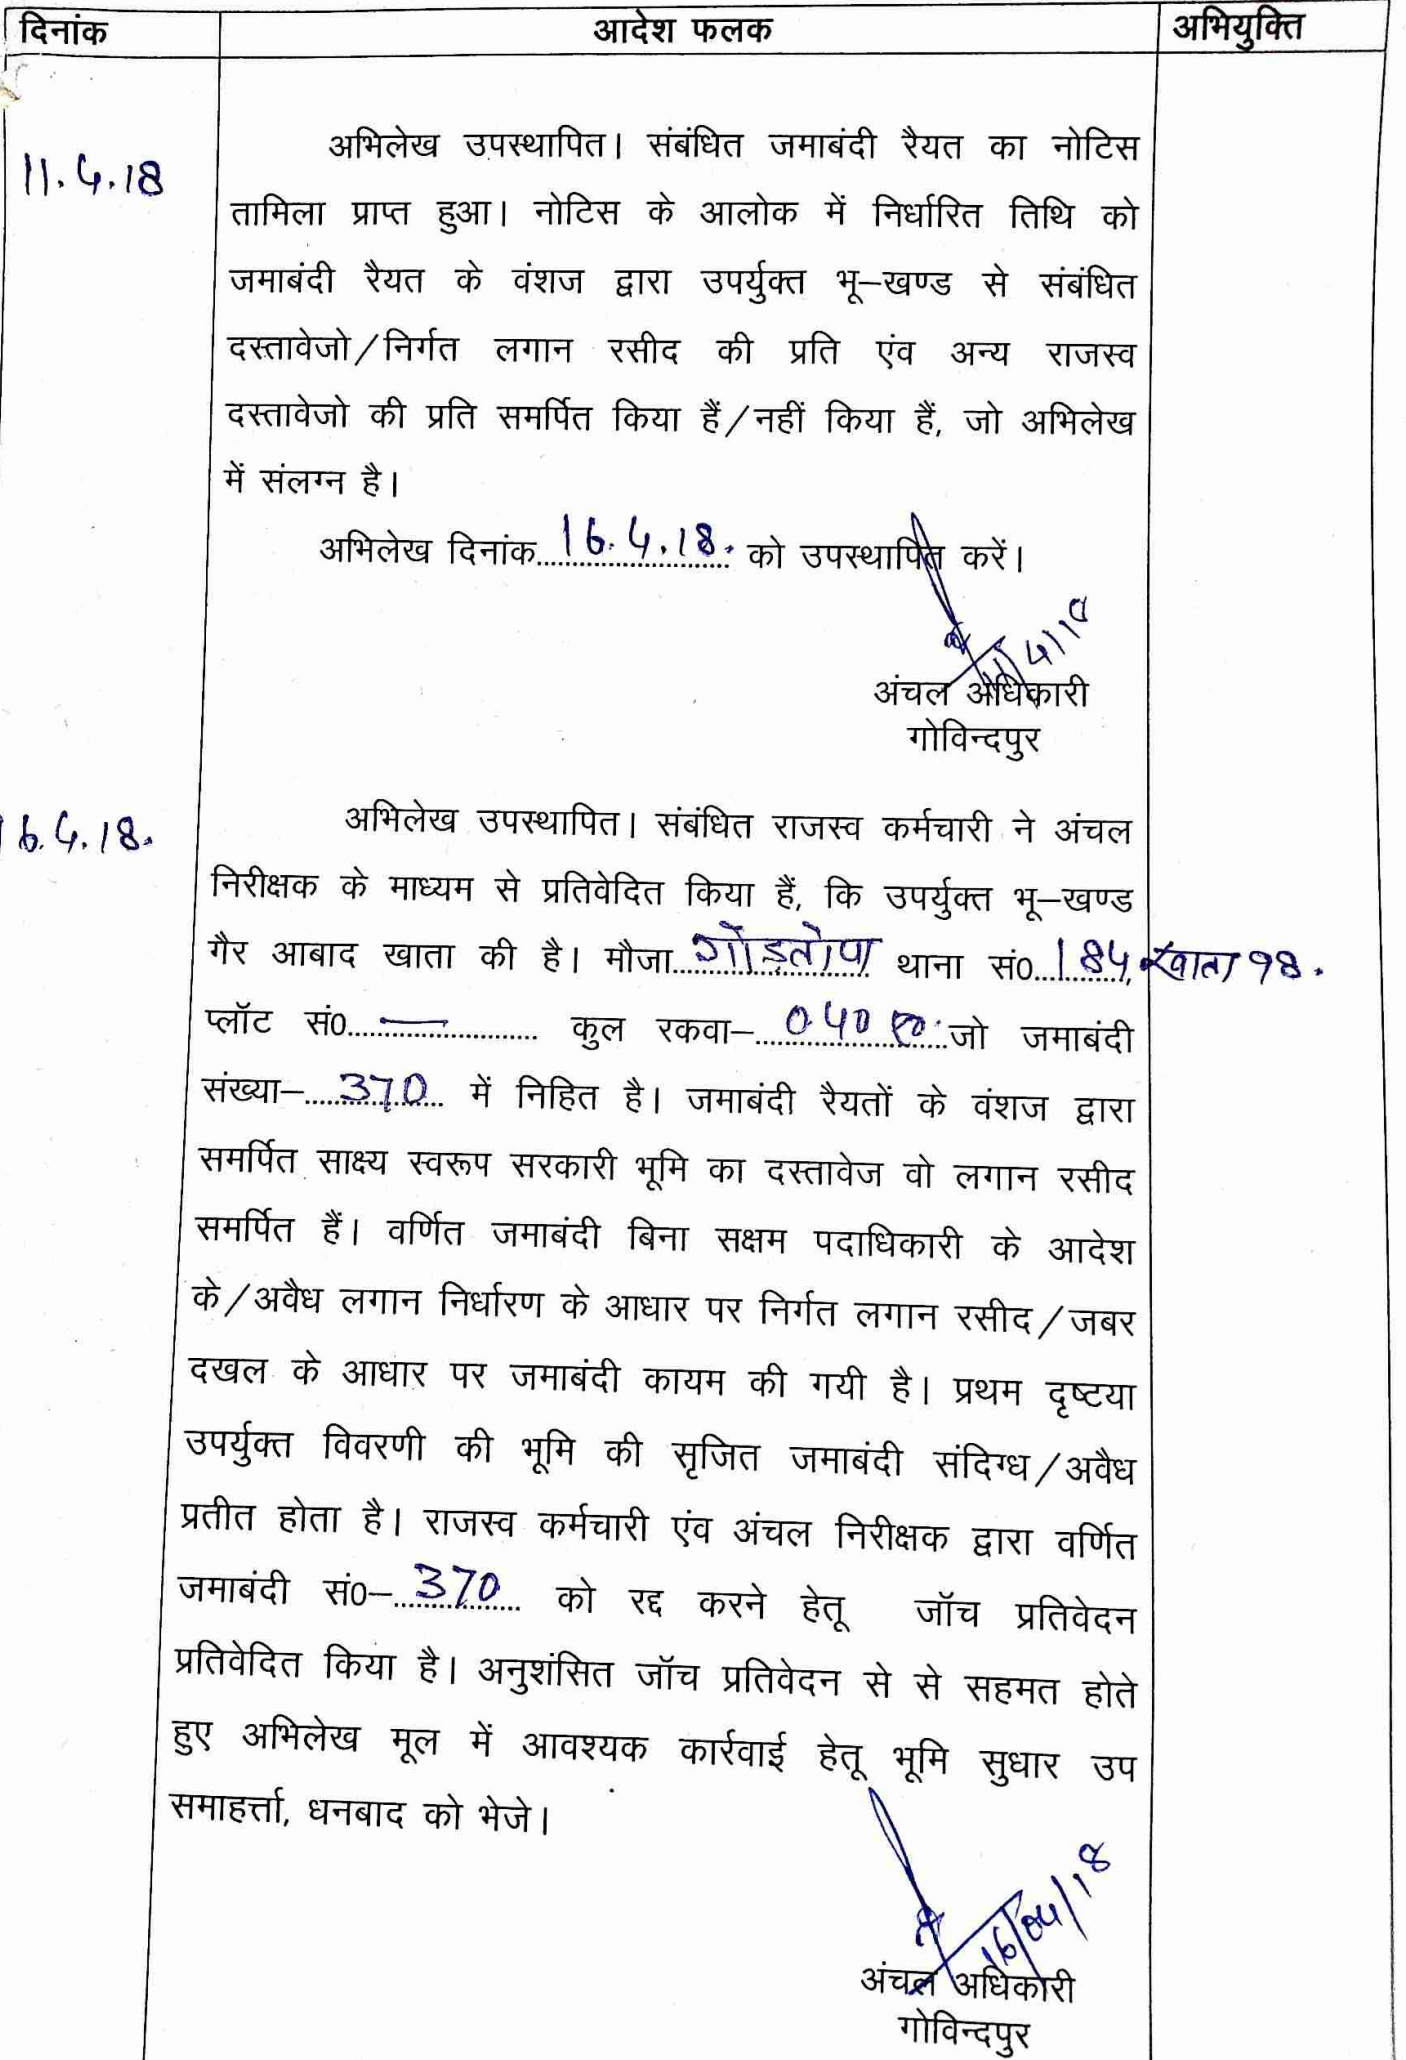 दिनांक आदेश फलक अभियुक्ति
11.4.18 अभिलेख उपस्थापित। संबंधित जमाबंदी रैयत का नोटिस
तामिला प्राप्त हुआ। नोटिस के आलोक में निर्धारित तिथि को
जमाबंदी रैयत के वंशज द्वारा उपर्युक्त भू–खण्ड से संबंधित
दस्तावेजो/निर्गत लगान रसीद की प्रति एंव अन्य राजस्व
दस्तावेजो की प्रति समर्पित किया हैं/नहीं किया हैं, जो अभिलेख
में संलग्न है।
अभिलेख दिनांक 16.4.18. को उपस्थापित करें।
11/4/18
अंचल अधिकारी
गोविन्दपुर
16.4.18. अभिलेख उपस्थापित। संबंधित राजस्व कर्मचारी ने अंचल
निरीक्षक के माध्यम से प्रतिवेदित किया हैं, कि उपर्युक्त भू–खण्ड
गैर आबाद खाता की है। मौजा गोड़तोपा थाना सं0 184, खाता 98.
प्लॉट सं0 — कुल रकवा– 0.40 ए0 जो जमाबंदी
संख्या– 370 में निहित है। जमाबंदी रैयतों के वंशज द्वारा
समर्पित साक्ष्य स्वरूप सरकारी भूमि का दस्तावेज वो लगान रसीद
समर्पित हैं। वर्णित जमाबंदी बिना सक्षम पदाधिकारी के आदेश
के/अवैध लगान निर्धारण के आधार पर निर्गत लगान रसीद/जबर
दखल के आधार पर जमाबंदी कायम की गयी है। प्रथम दृष्टया
उपर्युक्त विवरणी की भूमि की सृजित जमाबंदी संदिग्ध/अवैध
प्रतीत होता है। राजस्व कर्मचारी एंव अंचल निरीक्षक द्वारा वर्णित
जमाबंदी सं0– 370 को रद्द करने हेतू जॉच प्रतिवेदन
प्रतिवेदित किया है। अनुशंसित जॉच प्रतिवेदन से से सहमत होते
हुए अभिलेख मूल में आवश्यक कार्रवाई हेतू भूमि सुधार उप
समाहर्त्ता, धनबाद को भेजे।
16/04/18
अंचल अधिकारी
गोविन्दपुर